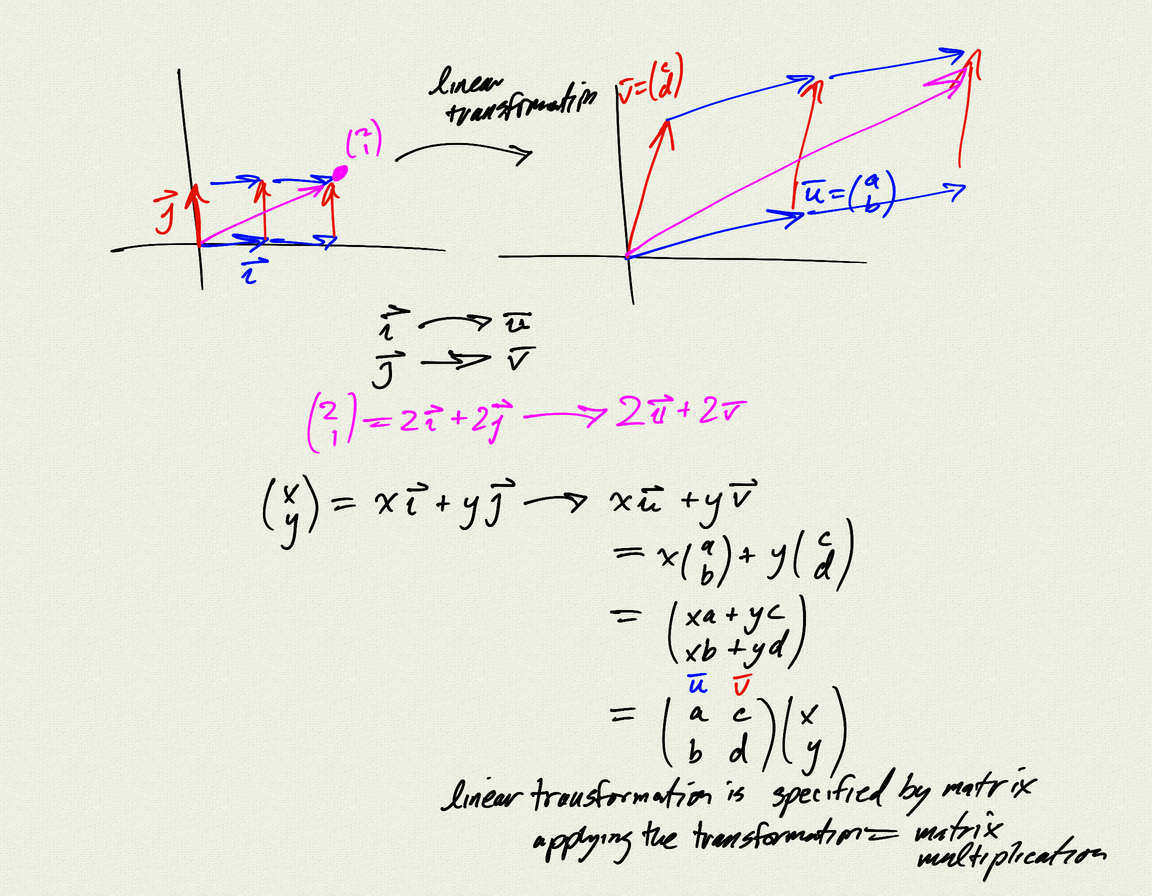 linear
transformation
v̅ = (c d)
(2 1)
j⃗
i⃗
u̅ = (a b)
i⃗ → u̅
j⃗ → v̅
(2 1) = 2i⃗ + 2j⃗ → 2u⃗ + 2v̅
(x y) = x i⃗ + y j⃗ → x u⃗ + y v⃗
= x(a b) + y(c d)
= (xa + yc
xb + yd)
u̅ v̅
= (a c
b d)(x y)
linear transformation is specified by matrix
applying the transformation = matrix
multiplication